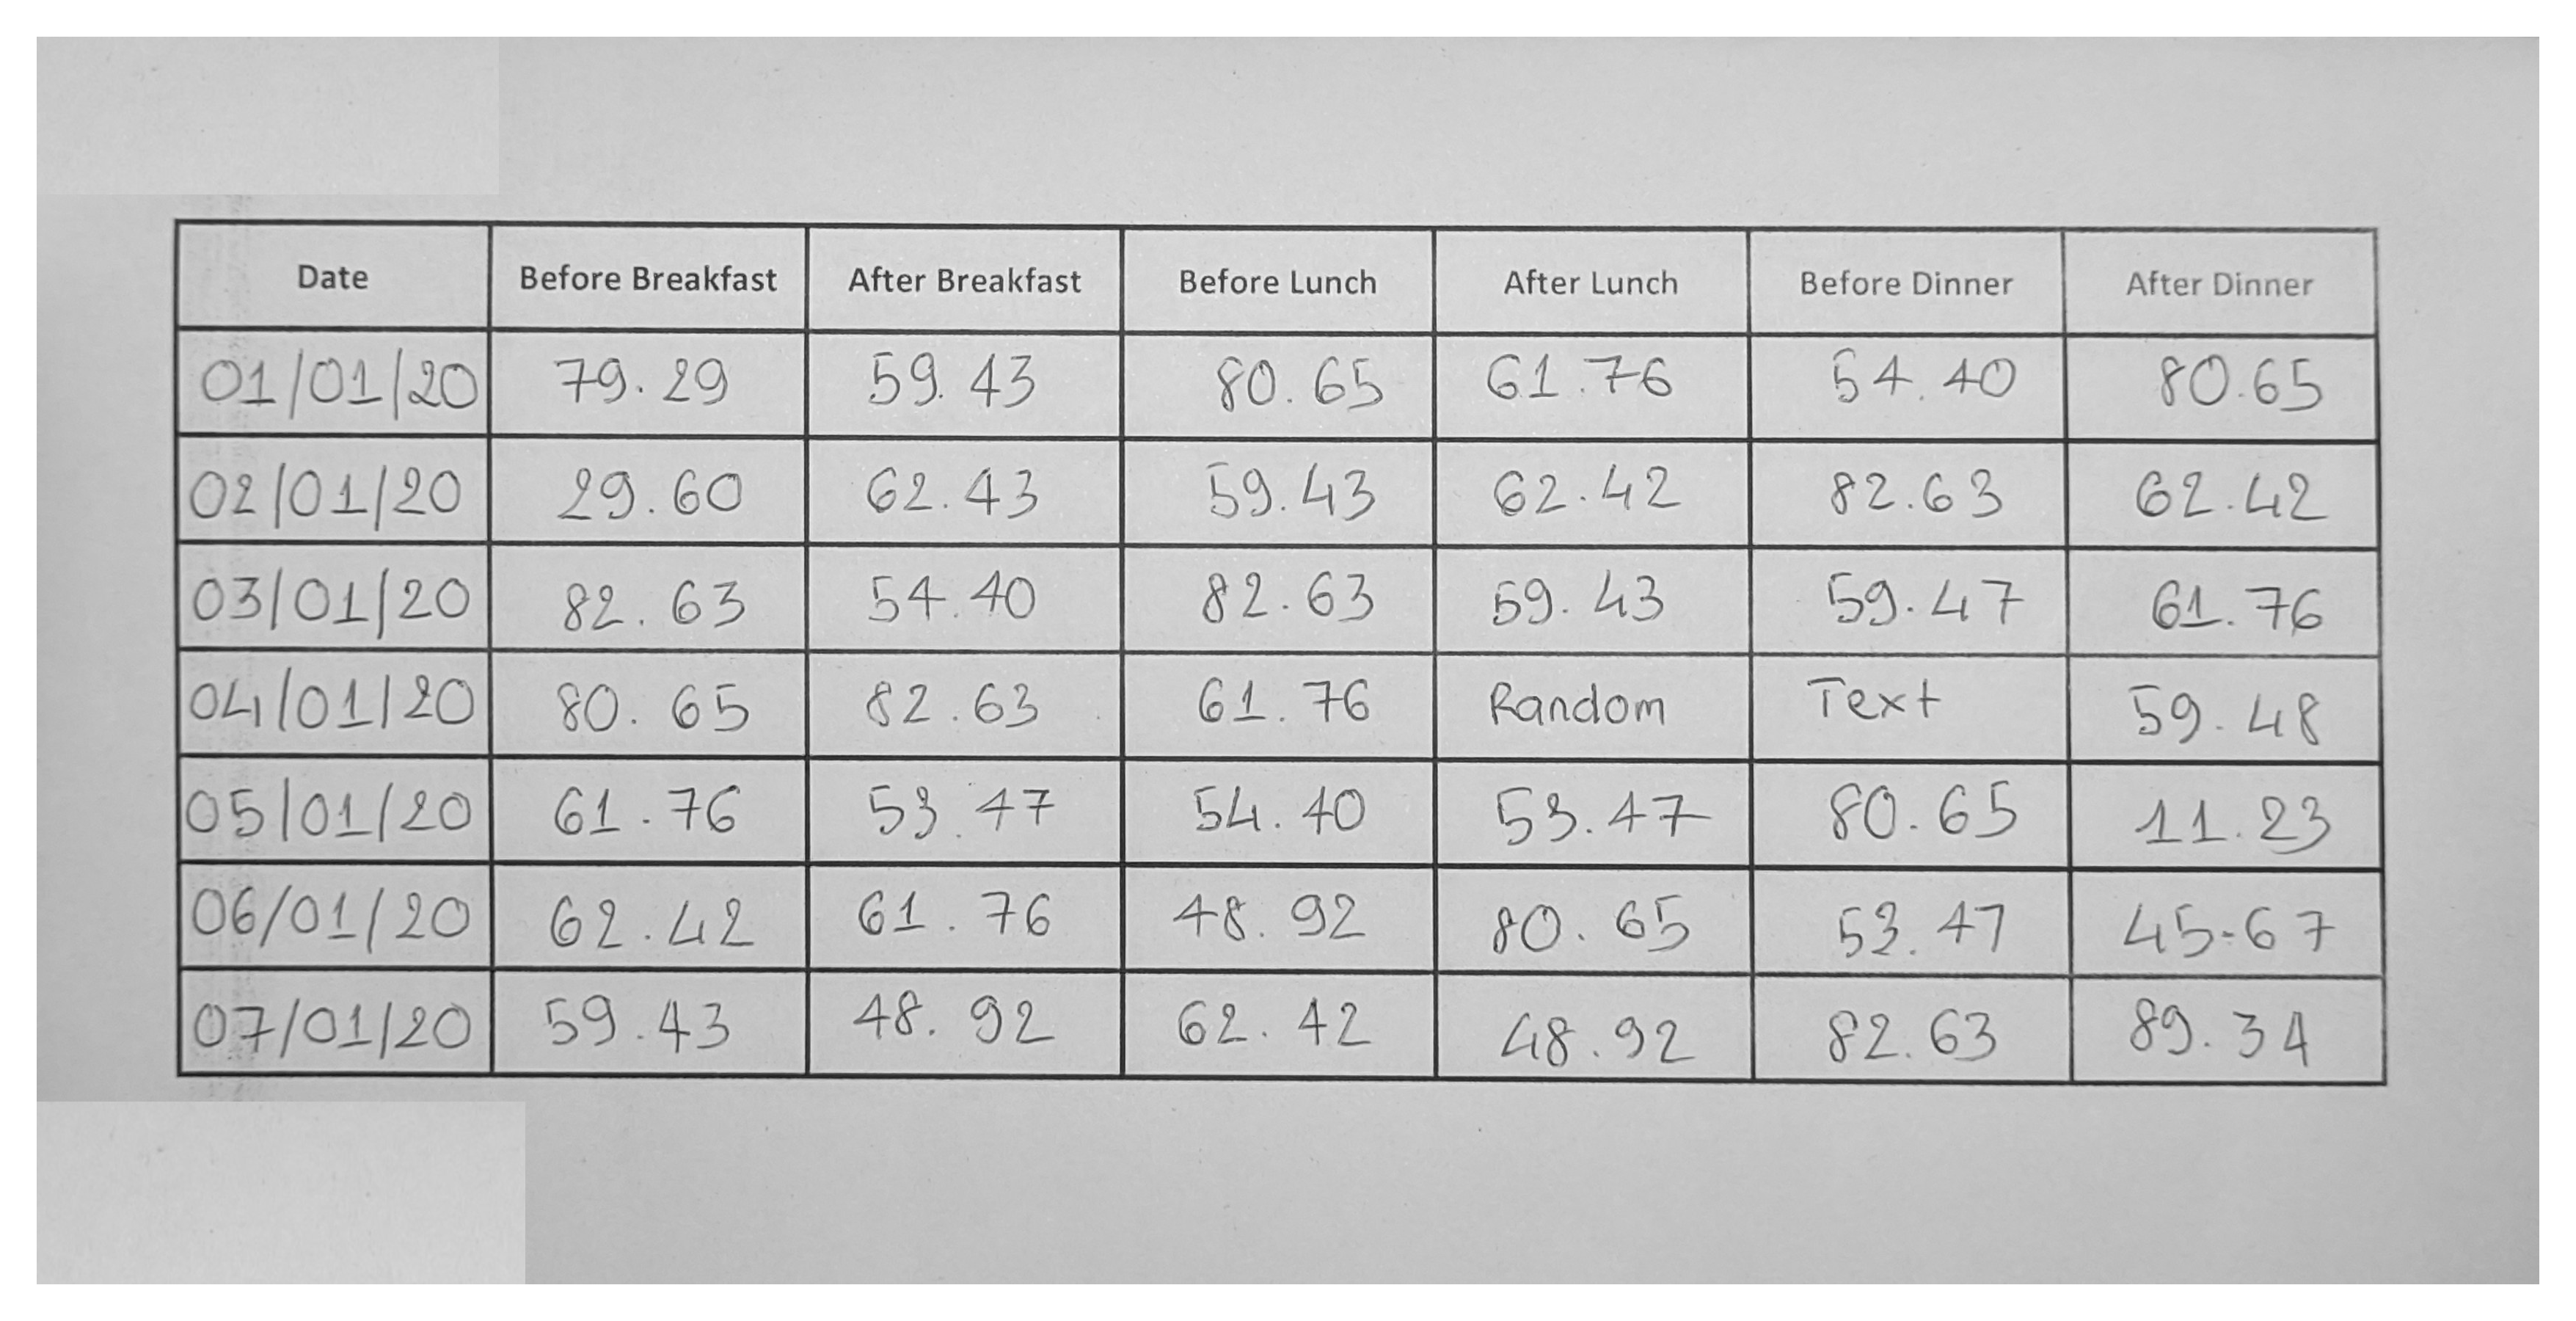 Date Before Breakfast After Breakfast Before Lunch After Lunch Before Dinner After Dinner
01/01/20 79.29 59.43 80.65 61.76 54.40 80.65
02/01/20 29.60 62.43 59.43 62.42 82.63 62.42
03/01/20 82.63 54.40 82.63 59.43 59.47 61.76
04/01/20 80.65 82.63 61.76 Random Text 59.48
05/01/20 61.76 53.47 54.40 53.47 80.65 11.23
06/01/20 62.42 61.76 48.92 80.65 53.47 45.67
07/01/20 59.43 48.92 62.42 48.92 82.63 89.34